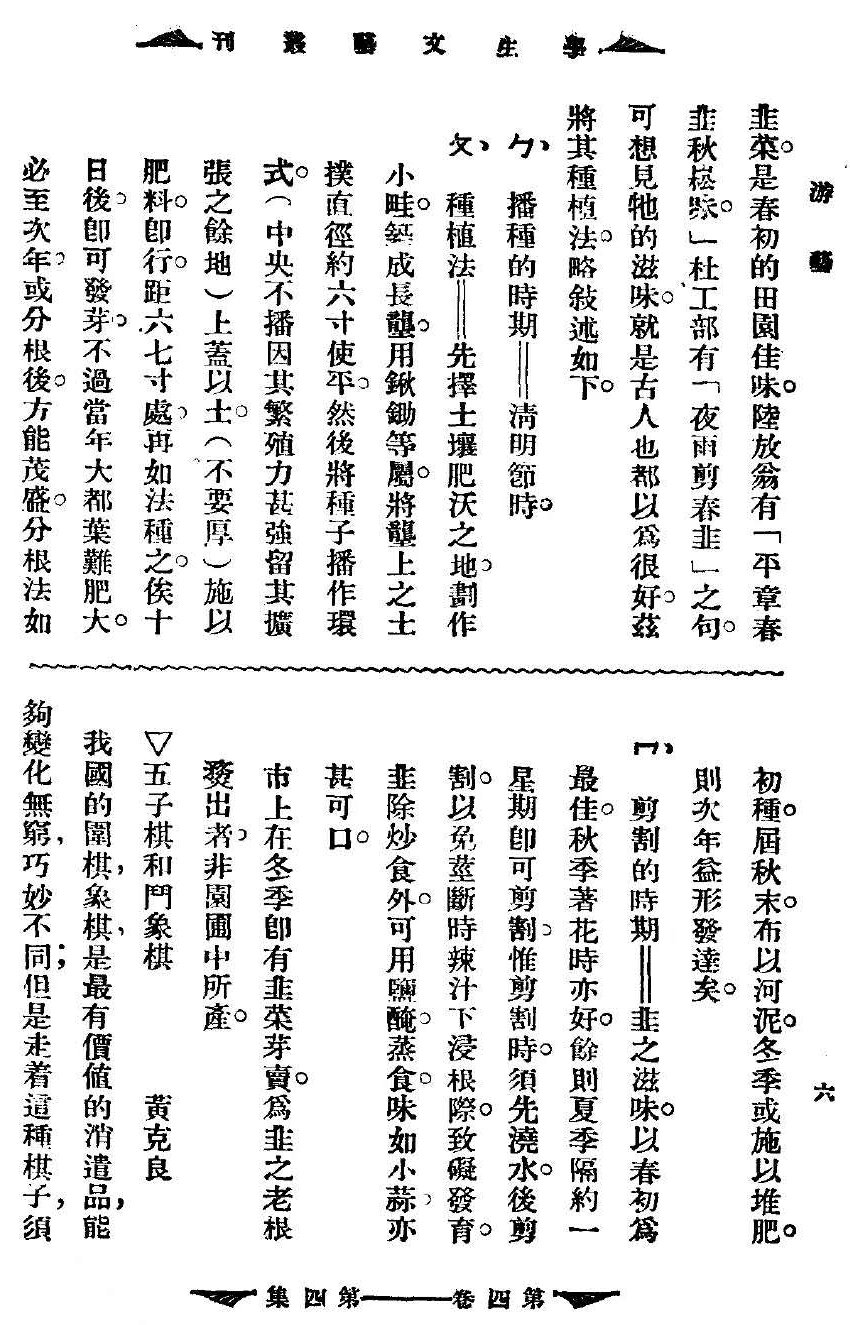 學生文藝叢刊
游藝
韭菜。是春初的田園佳味。陸放翁有「平章春
韭秋菘味。」杜工部有「夜雨剪春韭」之句。
可想見牠的滋味。就是古人也都以爲很好。茲
將其種植法。略敍述如下。
ㄅ、播種的時期＝清明節時。
ㄆ、種植法＝先擇土壤肥沃之地。劃作
小畦。築成長壟。用鍬鋤等屬。將壟上之土
撲直徑約六寸使平。然後將種子播作環
式。（中央不播因其繁殖力甚強留其擴
張之餘地）上蓋以土。（不要厚）施以
肥料。卽行。距六七寸處。再如法種之。俟十
日後。卽可發芽。不過當年大都葉難肥大。
必至次年。或分根後。方能茂盛。分根法如
初種。屆秋末。布以河泥。冬季或施以堆肥。
則次年益形發達矣。
ㄇ、剪割的時期＝韭之滋味。以春初爲
最佳。秋季著花時亦好。餘則夏季隔約一
星期卽可剪割。惟剪割時。須先澆水。後剪
割。以免莖斷時辣汁下浸根際。致礙發育。
韭除炒食外。可用鹽醃。蒸食。味如小蒜。亦
甚可口。
市上在冬季卽有韭菜芽賣。爲韭之老根
發出者。非園圃中所產。
▽五子棋和鬥象棋　黃克良
我國的圍棋，象棋，是最有價値的消遣品，能
夠變化無窮，巧妙不同；但是走着這種棋子，須
六
第四卷——第四集